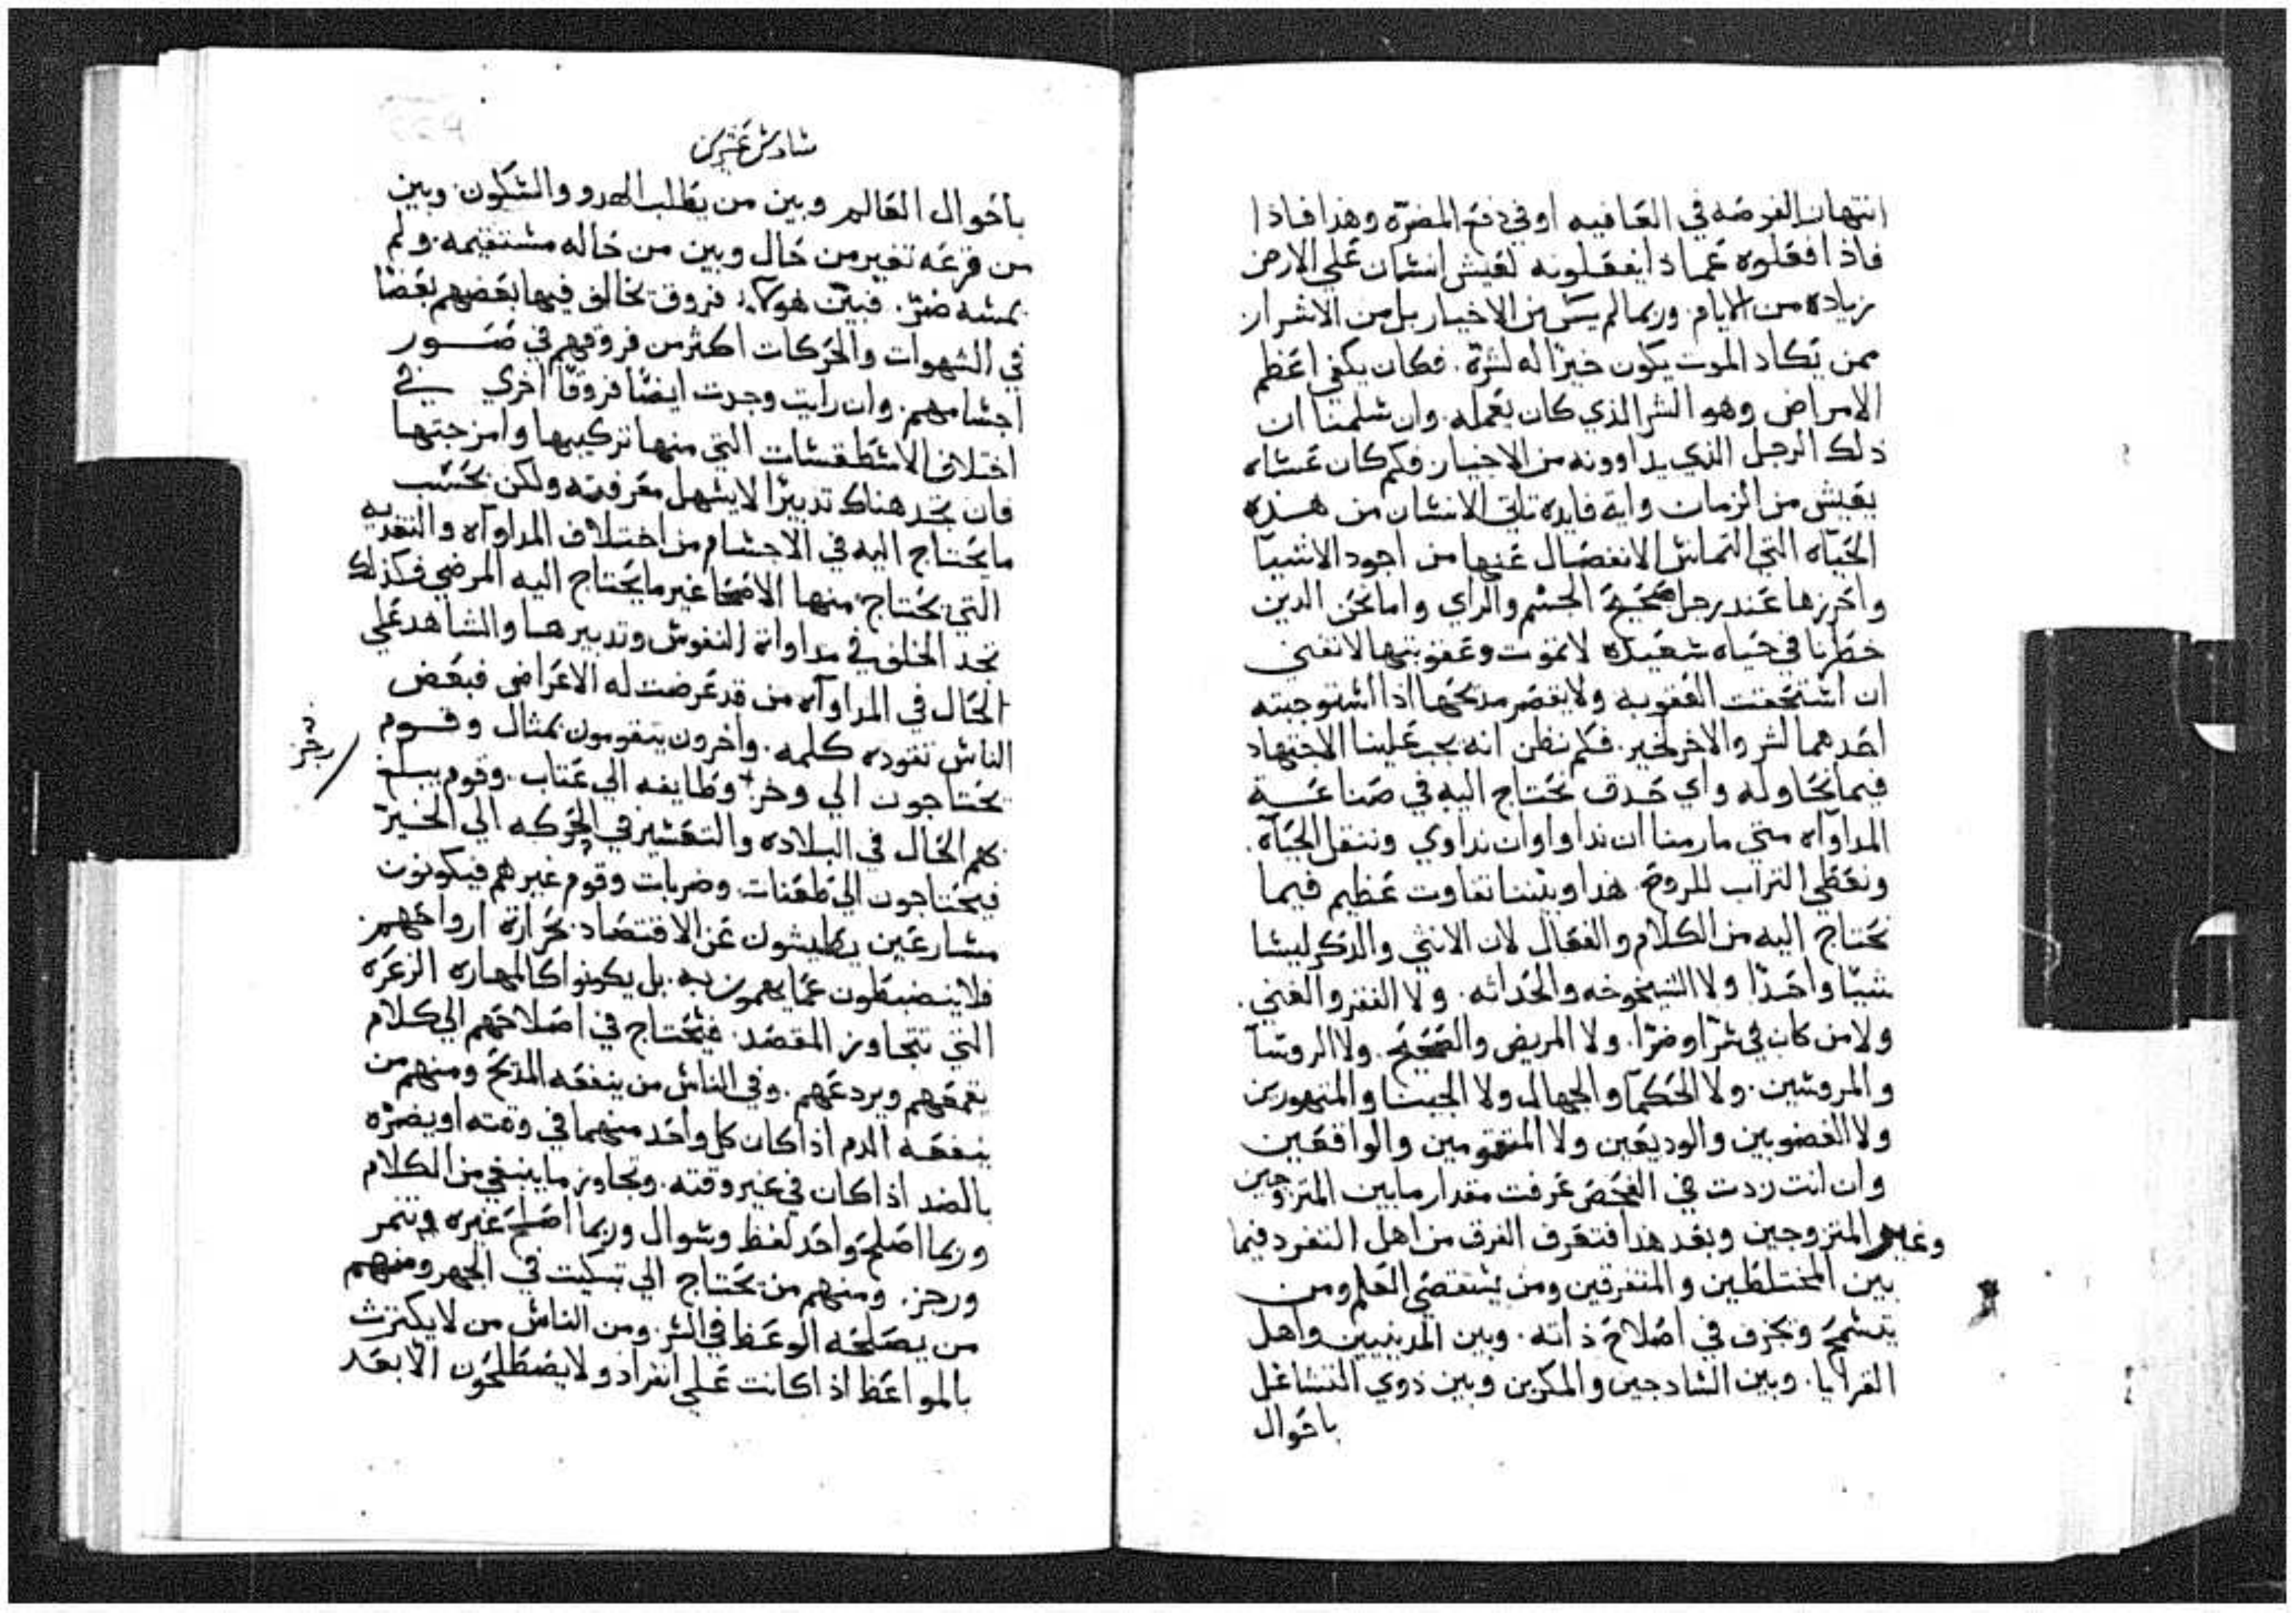 انتهاز الفرصه في العافيه او في دفع المضرّه وهذا فاذا
فاذا فعلوه عماذا يفعلونه لعيش انسان علي الارض
زياده من الايام. وربما لم يكن من الاخيار بل من الاشرار
ممن تكاد الموت يكون خيرًا له لشرة. فكان يكفي اعظم
الامراض وهو الشر الذي كان يعمله. وان سلمنا ان
ذلك الرجل الذي يداوونه من الاخيار فكم كان عساه
يعيش من الزمان واية فايده تاتي الانسان من هذه
الحياه التي التماس الانفصال عنها من اجود الاشيآ
واحرزها عند رجل صحيح الجسم والراي واما نحن الدين
خطرنا في حياه سعيده لا تموت وعقوبتها لا تفنى
ان استحقت العقوبه ولا يقصر مدتحها اذا استوجبته
احدهما لشر والاخر لخير. فكم نظن انه يجب علينا الاجتهاد
فيما نحاوله واي حدق نحتاج اليه في صناعة
المداوآه متي مارمنا ان نداوا وان نداوي وننقل الحياة.
ونعطي التراب للروح. هذا وبيننا تفاوت عظيم فيما
نحتاج اليه من الكلام والفعال لان الانثي والذكر ليسا
شيًا واحدًا ولا الشيخوخه والحداثه. ولا الفقر والغني.
ولا من كان في سرّا وضرّا. ولا المريض والصحيح. ولا الروسآ
والمروسين. ولا الحكمآ والجهال ولا الجبنا والمتهورين
ولا الغضوبين والوديعين ولا المتقومين والواقعين
وان انت زدت في الفحص عرفت مقدار ما بين المتزوجين
وغير المتزوجين وبعد هذا فتعرف الفرق من اهل التفرد فيما
بين المختلطين والمتفرقين ومن يستقصي العلم ومن
يتسمح ويجزف في اصلاح ذاته. وبين المدينيين واهل
القرايا. وبين السادجين والمكرين وبين ذوي التشاغل
باحوال
سادس عشرين
باحوال العالم وبين من يطلب الهدو والسكون. وبين
من قرعه تغير من حال وبين من حاله مستقيمه. ولم
يمسه ضرّ. فبين هولآء فروق يخالف فيها بعضهم بعضًا
في الشهوات والحركات اكثر من فروقهم في صور
اجسامهم. وان رايت وجدت ايضًا فروقًا اخري في
اختلاف الاسطقسات التي منها تركيبها وامزجتها
فان تجد هناك تدبيرًا لا يسهل معرفته ولكن بحسب
ما يحتاج اليه في الاجسام من اختلاف المداوآه والتغديه
التي يحتاج منها الاصحا غير ما يحتاج اليه المرضي فكذلك
نجد الخلف في مداواة النفوس وتدبيرها والشاهد علي
الحال في المداوآه من قد عرضت له الاعراض فبعض
الناس تقوده كلمه. واخرون يتقومون بمثال وقوم
يحتاجون الي وخز وطايفه الي عتاب. وقوم يبلغ
بهم الحال في البلاده والتعسير في الحركه الي الخير
فيحتاجون الي طعنات وضربات وقوم غيرهم فيكونون
مسارعين يطيشون عن الاقتصاد بحرارة ارواحهم
فلا ينضبطون عما يهمون به. بل يكونوا كالمهاره الزعره
التي تتجاوز المقصد. فيحتاج في اصلاحهم الي كلام
يقمعهم ويردعهم. وفي الناس من ينفعه المدح ومنهم من
ينفعه الدم اذا كان كل واحد منهما في وقته او يضرّه
بالضد اذا كان في غير وقته. وتجاوز ما ينبغي من الكلام
وربما اصلح واحد لفظ وسوال وربما اصلح غيره وتنمر
ورجز. ومنهم من يحتاج الي تبكيت في الجهر ومنهم
من يصلحه الوعظ في السر. ومن الناس من لا يكترث
بالمواعظ اذا كانت علي انفراد ولا يصطلحون الا بعد